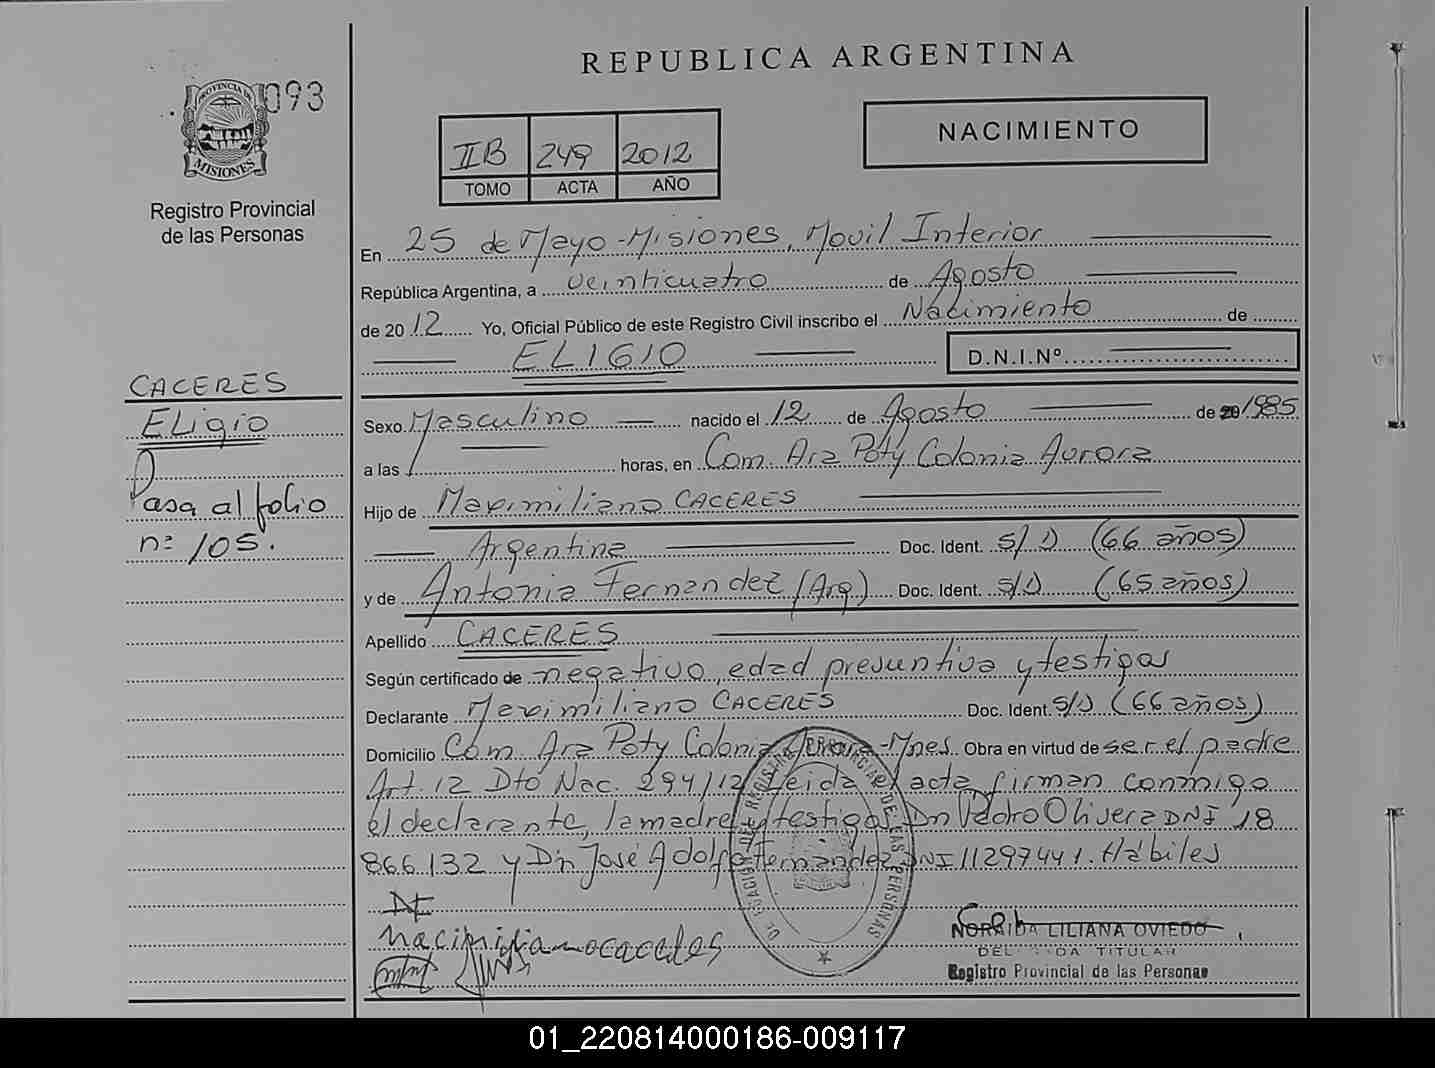 REPUBLICA ARGENTINA
093
PROVINCIA DE
MISIONES
Registro Provincial
de las Personas
NACIMIENTO
IIB 249 2012
TOMO ACTA AÑO
En 25 de Mayo - Misiones, Movil Interior
República Argentina, a veinticuatro de Agosto
de 2012 Yo, Oficial Público de este Registro Civil inscribo el Nacimiento de
ELIGIO D.N.I.Nº
CACERES
Eligio
Pasa al folio
nº 105.
Sexo Masculino nacido el 12 de Agosto de 1985
a las horas, en Com. Ara Poty Colonia Aurora
Hijo de Maximiliano CACERES
Argentina Doc. Ident. S/D (66 años)
y de Antonia Fernandez (Arg) Doc. Ident. S/D (65 años)
Apellido CACERES
Según certificado de negativo, edad presuntiva y testigos
Declarante Maximiliano CACERES Doc. Ident. S/D (66 años)
Domicilio Com. Ara Poty Colonia Aurora - Mnes. Obra en virtud de ser el padre
Art. 12 Dto Nac. 294/12 Leida el acta, firman conmigo
el declarante, la madre y testigos Dn Pedro Olivera DNI 18
866132 y Dn José Adolfo Fernandez DNI 11297441. Hábiles
DELEGACION DEL REGISTRO PROVINCIAL DE LAS PERSONAS
LILIANA OVIEDO
TITULAR
Registro Provincial de las Personas
01_220814000186-009117